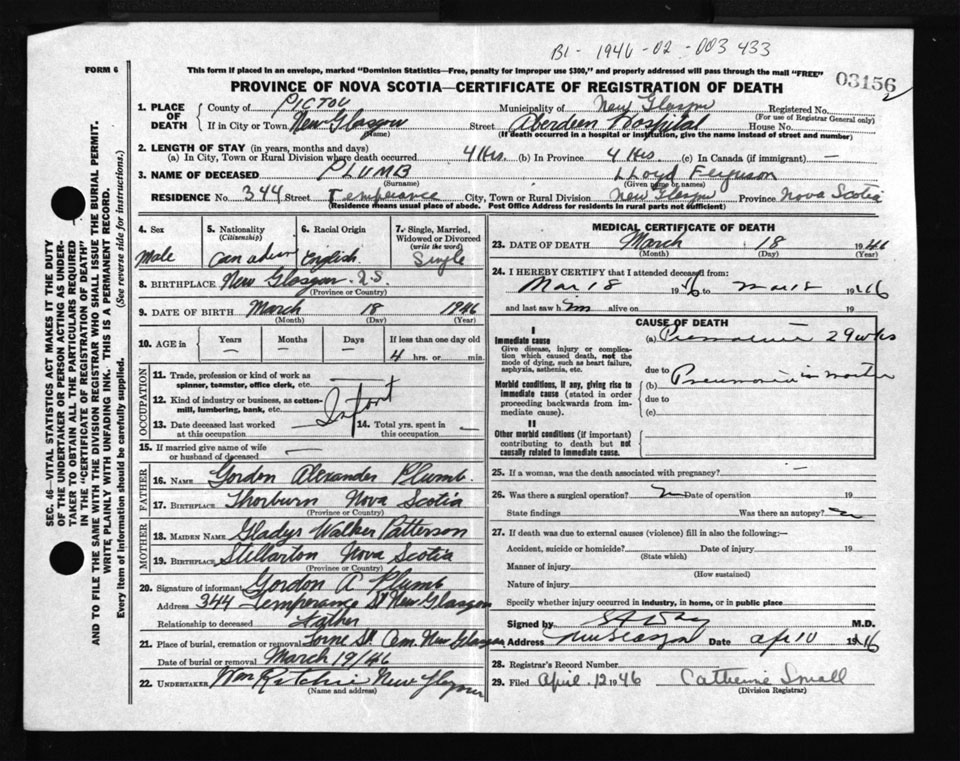 B1- 1946-02-003433
FORM 6
This form if placed in an envelope, marked "Dominion Statistics—Free, penalty for improper use $300," and properly addressed will pass through the mail "FREE"
PROVINCE OF NOVA SCOTIA—CERTIFICATE OF REGISTRATION OF DEATH
03156
2
1. PLACE OF DEATH
County of Pictou Municipality of New Glasgow Registered No.
(For use of Registrar General only)
If in City or Town New Glasgow Street Aberdeen Hospital House No.
(Name) (If death occurred in a hospital or institution, give the name instead of street and number)
2. LENGTH OF STAY (in years, months and days)
(a) In City, Town or Rural Division where death occurred 4 Hrs. (b) In Province 4 Hrs. (c) In Canada (if immigrant) —
3. NAME OF DECEASED PLUMB LLoyd Ferguson
(Surname) (Given name or names)
RESIDENCE No. 344 Street Temperance City, Town or Rural Division New Glasgow Province Nova Scotia
(Residence means usual place of abode. Post Office Address for residents in rural parts not sufficient)
4. Sex
Male
5. Nationality
(Citizenship)
Canadian
6. Racial Origin
English
7. Single, Married, Widowed or Divorced
(write the word)
Single
8. BIRTHPLACE New Glasgow N.S.
(Province or Country)
9. DATE OF BIRTH March 18 1946
(Month) (Day) (Year)
10. AGE in Years Months Days If less than one day old
— — — 4 hrs. or min.
OCCUPATION
11. Trade, profession or kind of work as spinner, teamster, office clerk, etc. —
12. Kind of industry or business, as cotton-mill, lumbering, bank, etc. Infant
13. Date deceased last worked at this occupation —
14. Total yrs. spent in this occupation —
15. If married give name of wife or husband of deceased
FATHER
16. NAME Gordon Alexander Plumb.
17. BIRTHPLACE Thorburn Nova Scotia
(Province or Country)
MOTHER
18. MAIDEN NAME Gladys Walker Patterson
19. BIRTHPLACE Stellarton Nova Scotia
(Province or Country)
20. Signature of informant Gordon A Plumb
Address 344 Temperance St New Glasgow
Relationship to deceased Father
21. Place of burial, cremation or removal Lorne St. Cem. New Glasgow
Date of burial or removal March 19/46
22. UNDERTAKER Wm Ritchie New Glasgow
(Name and address)
MEDICAL CERTIFICATE OF DEATH
23. DATE OF DEATH March 18 1946
(Month) (Day) (Year)
24. I HEREBY CERTIFY that I attended deceased from:
Mar 18 1946 to Mar 18 1946
and last saw him alive on 19
CAUSE OF DEATH
I
Immediate cause (a) Premature 29 wks
Give disease, injury or complication which caused death, not the mode of dying, such as heart failure, asphyxia, asthenia, etc.
due to
Morbid conditions, if any, giving rise to immediate cause (stated in order proceeding backwards from immediate cause).
(b) Pneumonia in mother
due to
(c)
II
Other morbid conditions (if important) contributing to death but not causally related to immediate cause.
25. If a woman, was the death associated with pregnancy? —
26. Was there a surgical operation? Date of operation 19
State findings Was there an autopsy?
27. If death was due to external causes (violence) fill in also the following:—
Accident, suicide or homicide? Date of injury 19
(State which)
Manner of injury
(How sustained)
Nature of injury
Specify whether injury occurred in industry, in home, or in public place
Signed by M.D.
Address New Glasgow Date Apr 10 1946
28. Registrar's Record Number
29. Filed April. 12 1946 Catherine Small
(Division Registrar)
SEC. 46—VITAL STATISTICS ACT MAKES IT THE DUTY
OF THE UNDERTAKER OR PERSON ACTING AS UNDER-
TAKER TO OBTAIN ALL THE PARTICULARS REQUIRED
IN THE "CERTIFICATE OF REGISTRATION OF DEATH"
AND TO FILE THE SAME WITH THE DIVISION REGISTRAR WHO SHALL ISSUE THE BURIAL PERMIT.
WRITE PLAINLY WITH UNFADING INK. THIS IS A PERMANENT RECORD.
Every item of information should be carefully supplied. (See reverse side for instructions.)